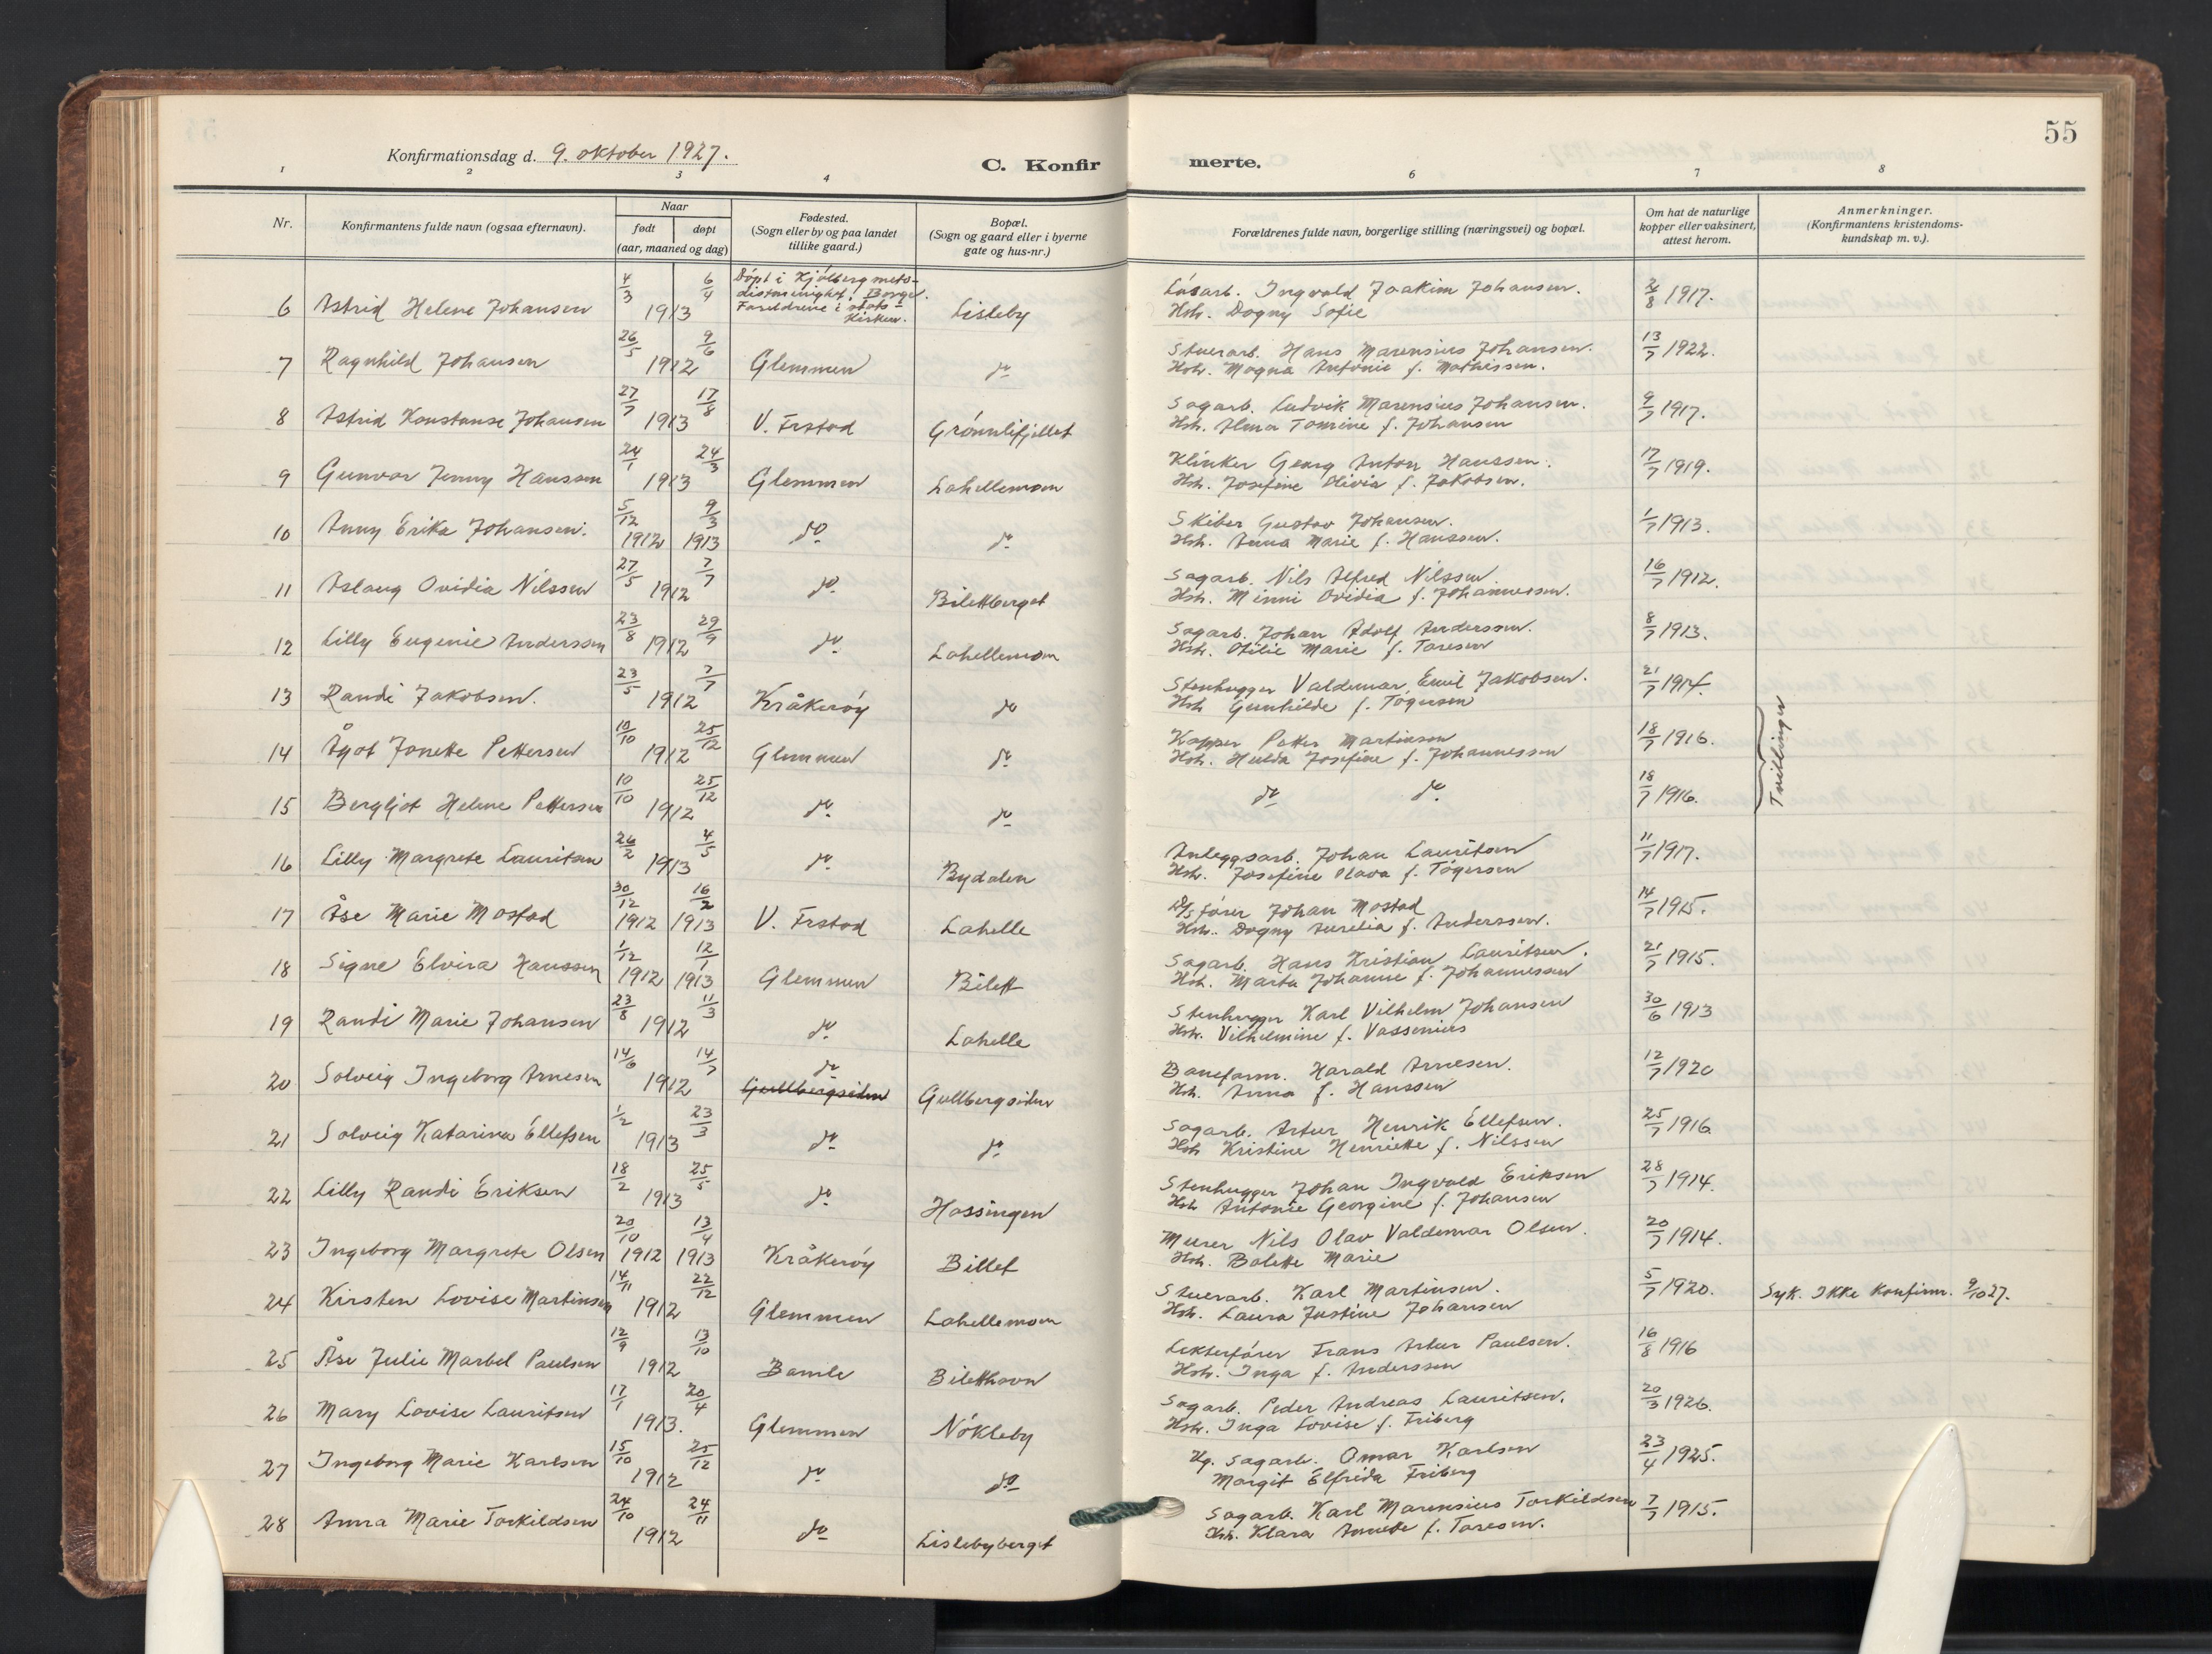 55
Konfirmationsdag d. 9. oktober 1927.
C. Konfirmerte.
1 2 3 4 6 7 8
Nr. Konfirmantens fulde navn (ogsaa efternavn). Naar født døpt (aar, maaned og dag) Fødested. (Sogn eller by og paa landet tillike gaard.) Bopæl. (Sogn og gaard eller i byerne gate og hus-nr.) Forældrenes fulde navn, borgerlige stilling (næringsvei) og bopæl. Om hat de naturlige kopper eller vaksinert, attest herom. Anmerkninger. (Konfirmantens kristendoms-kundskap m. v.).
6 Astrid Helene Johansen 4/3 6/4 1913 Döpt i Kjölberg metodistmenighet, Borge. Foreldrene i statskirken. Lisleby Lösarb. Ingvald Joakim Johansen. 2/8 1917.
Hstr. Dagny Sofie
7 Ragnhild Johansen 26/5 9/6 1912 Glemmen do Stuerarb. Hans Marensius Johansen. 13/7 1922.
Hstr. Magna Antonie f. Mathissen.
8 Astrid Konstanse Johansen 27/7 17/8 1913 V. Frstad Grönnlifjellet Sagarb. Ludvik Marensius Johansen. 9/7 1917.
Hstr. Alma Tomine f. Johansen
9 Gunvor Jenny Hanssen 24/1 24/3 1913 Glemmen Lahellemoen Klinker Georg Anton Hanssen. 17/7 1919.
Hstr. Josefine Olivia f. Jakobsen.
10 Anny Erika Johansen. 5/12 1912 9/3 1913 do do Skiber Gustav Johansen. 1/7 1913.
Hstr. Anna Marie f. Hanssen.
11 Aslaug Ovidia Nilssen 27/5 7/7 1912 do Bilettberget Sagarb. Nils Alfred Nilssen. 16/7 1912.
Hstr. Minni Ovidia f. Johannessen.
12 Lilly Eugenie Anderssen 23/8 29/9 1912 do Lahellemoen Sagarb. Johan Adolf Anderssen. 8/7 1913.
Hstr. Otilie Marie f. Taresen
13 Randi Jakobsen. 23/5 7/7 1912 Kråkeröy do Stenhugger Valdemar Emil Jakobsen. 21/7 1914.
Hstr Gunhilde f. Tögersen
14 Ågot Jonette Pettersen 10/10 25/12 1912 Glemmen do Kopper Petter Martinsen 18/7 1916. Tvillinger
Hstr. Hulda Josefine f. Johannessen
15 Bergljot Helene Pettersen 10/10 25/12 1912 do do do do 18/7 1916.
16 Lilly Margrete Lauritsen 26/2 4/5 1913 do Bydalen Anleggsarb. Johan Lauritsen 11/7 1917.
Hstr. Josefine Olava f. Tögersen
17 Åse Marie Mostad 30/12 1912 16/2 1913 V. Frstad Lahelle D/S förer Johan Mostad 14/7 1915.
Hstr. Dagny Aurelia f. Anderssen.
18 Signe Elvira Hanssen 1/12 1912 12/1 1913 Glemmen Bilett Sagarb. Hans Kristian Lauritsen. 21/7 1915.
Hstr. Marta Johanne f. Johannessen
19 Randi Marie Johansen 23/8 11/3 1912 do Lahelle Stenhugger Karl Vilhelm Johansen 30/6 1913
Hstr. Vilhelmine f. Vassenius
20 Solveig Ingeborg Arnesen 14/6 14/7 1912 do Gullbergsiden Gullbergsiden Baneform. Harald Arnesen. 12/7 1920
Hstr. Anna f. Hanssen
21 Solveig Katarina Ellefsen 1/2 23/3 1913 do do Sagarb. Artur Henrik Ellefsen. 25/7 1916
Hstr Kristine Henriette f. Nilssen
22 Lilly Randi Eriksen 18/2 25/5 1913 do Hassingen Stenhugger Johan Ingvald Eriksen 28/7 1914.
Hstr Antonie Georgine f. Johansen
23 Ingeborg Margrete Olsen 20/10 1912 13/4 1913 Kråkeröy Billet Murer Nils Olav Valdemar Olsen. 20/7 1914.
Hstr. Bolette Marie
24 Kirsten Lovise Martinsen 14/11 22/12 1912 Glemmen Lahellemoen Stuerarb. Karl Martinsen. 5/7 1920. Syk. Ikke konfirm. 9/10 27.
Hstr. Laura Justine Johansen
25 Åse Julie Marbel Paulsen 12/9 13/10 1912 Bamle Biletthavn Lekterförer Frans Artur Paulsen. 16/8 1916
Hstr. Inga f. Anderssen
26 Mary Lovise Lauritsen 17/1 20/4 1913. Glemmen Nökleby Sagarb. Peder Andreas Lauritsen. 20/3 1926.
Hstr. Inga Lovise f. Friberg
27 Ingeborg Marie Karlsen 15/10 25/12 1912 do do Ug. sagarb. Omar Karlsen 23/4 1925.
Margit Elfrida Friberg
28 Anna Marie Torkildsen 24/10 24/11 1912 do Lislebyberget Sagarb. Karl Marensius Torkildsen 7/7 1915.
Hstr. Klara Annette f. Taresen.